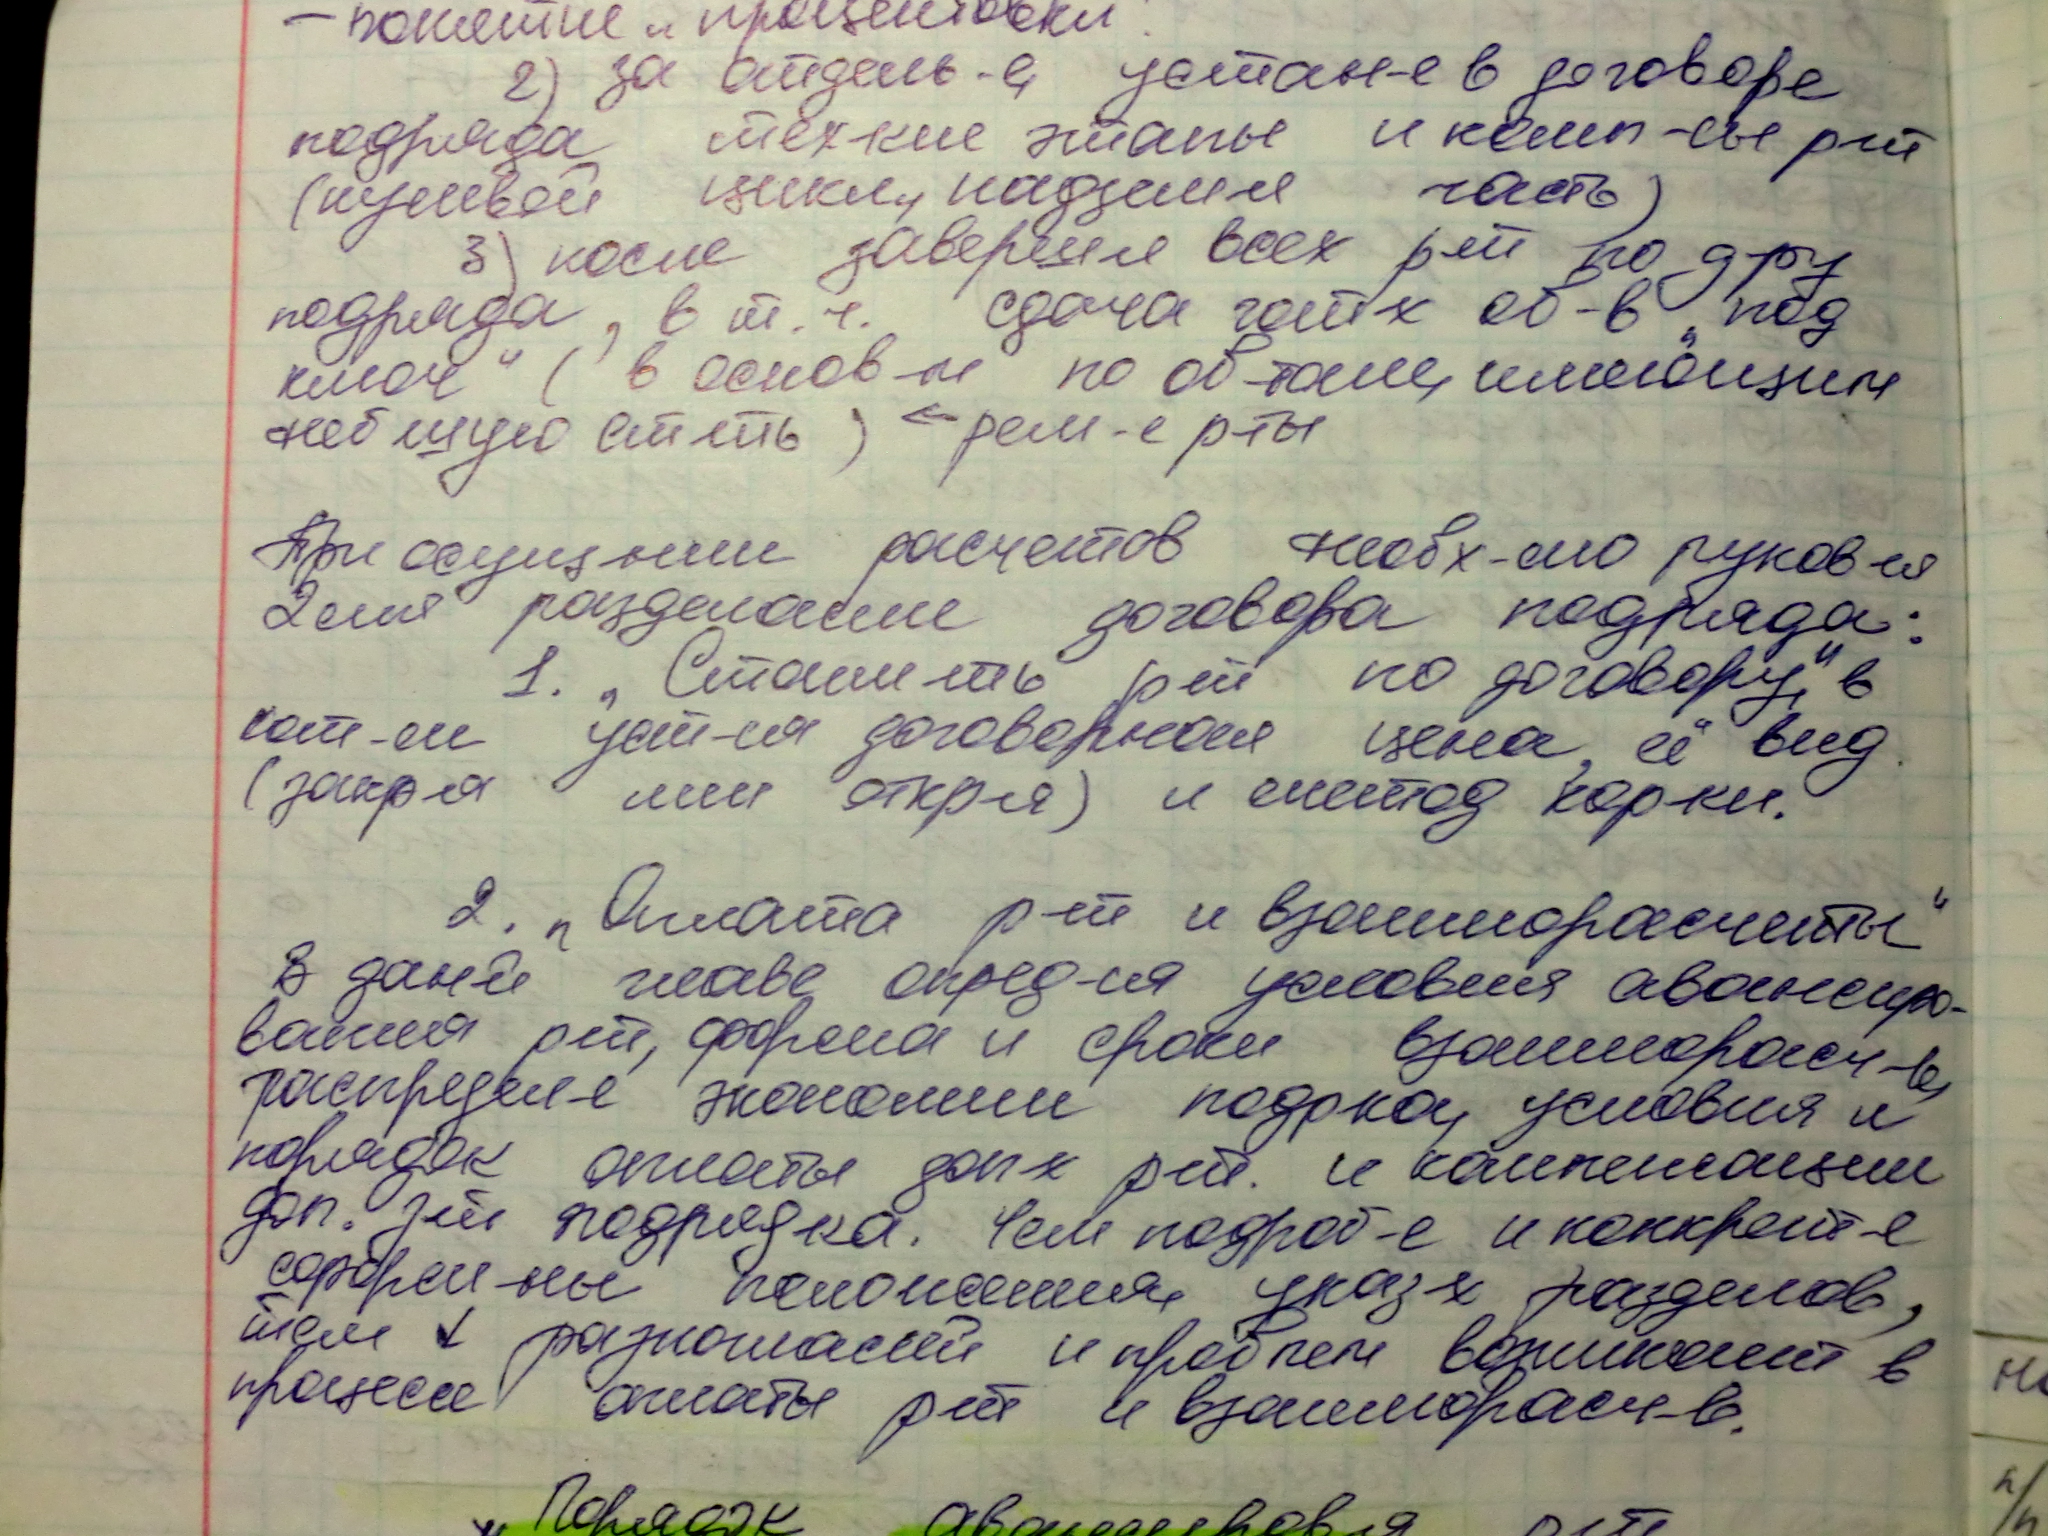 – понятие „процентовки"
2) за отдель-е, устан-е в договоре
подряда тех-кие этапы и комп-сы р-т
(нулевой цикл, надземн часть)
3) после заверш-я всех р-т по д-ру
подряда, в т.ч. сдача гот-х об-в „под
ключ" (в основ-м по об-там, имеющим
небшую ст-ть) ← рем-е р-ты
При осущ-нии расчетов необх-мо руков-ся
2-мя разделами договора подряда:
1. „Стоим-ть р-т по договору", в
кот-м уст-ся договорная цена, её вид
(закр-я или откр-я) и метод кор-ки.
2. „Оплата р-т и взаиморасчеты"
В дан-й главе опред-ся условия авансиро-
вания р-т, форма и сроки взаиморасч-в,
распредел-е экономии подр-ка, условия и
порядок оплаты доп-х р-т. и компенсации
доп. з-т подряд-ка. Чем подроб-е и конкрет-е
сформ-ны положения указ-х разделов,
тем ↓ разногласий и проблем возникает в
процессе оплаты р-т и взаиморасч-в.
Порядок авансиров-я р-т